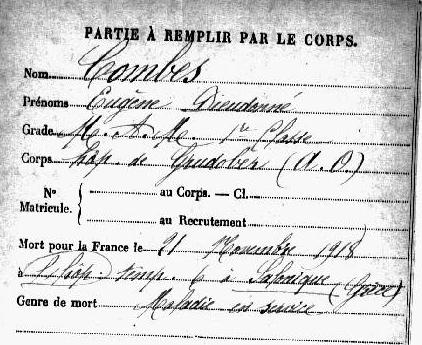 PARTIE À REMPLIR PAR LE CORPS.
Nom Combes
Prénoms Eugène Dieudonné
Grade M. A. M. 1re Classe
Corps hôp. de Grudober (A. O)
No Matricule. { au Corps. — Cl.
au Recrutement
Mort pour la France le 21 Novembre 1918
à l'hôp. temp. 6 à Salonique (Grèce)
Genre de mort Maladie en service